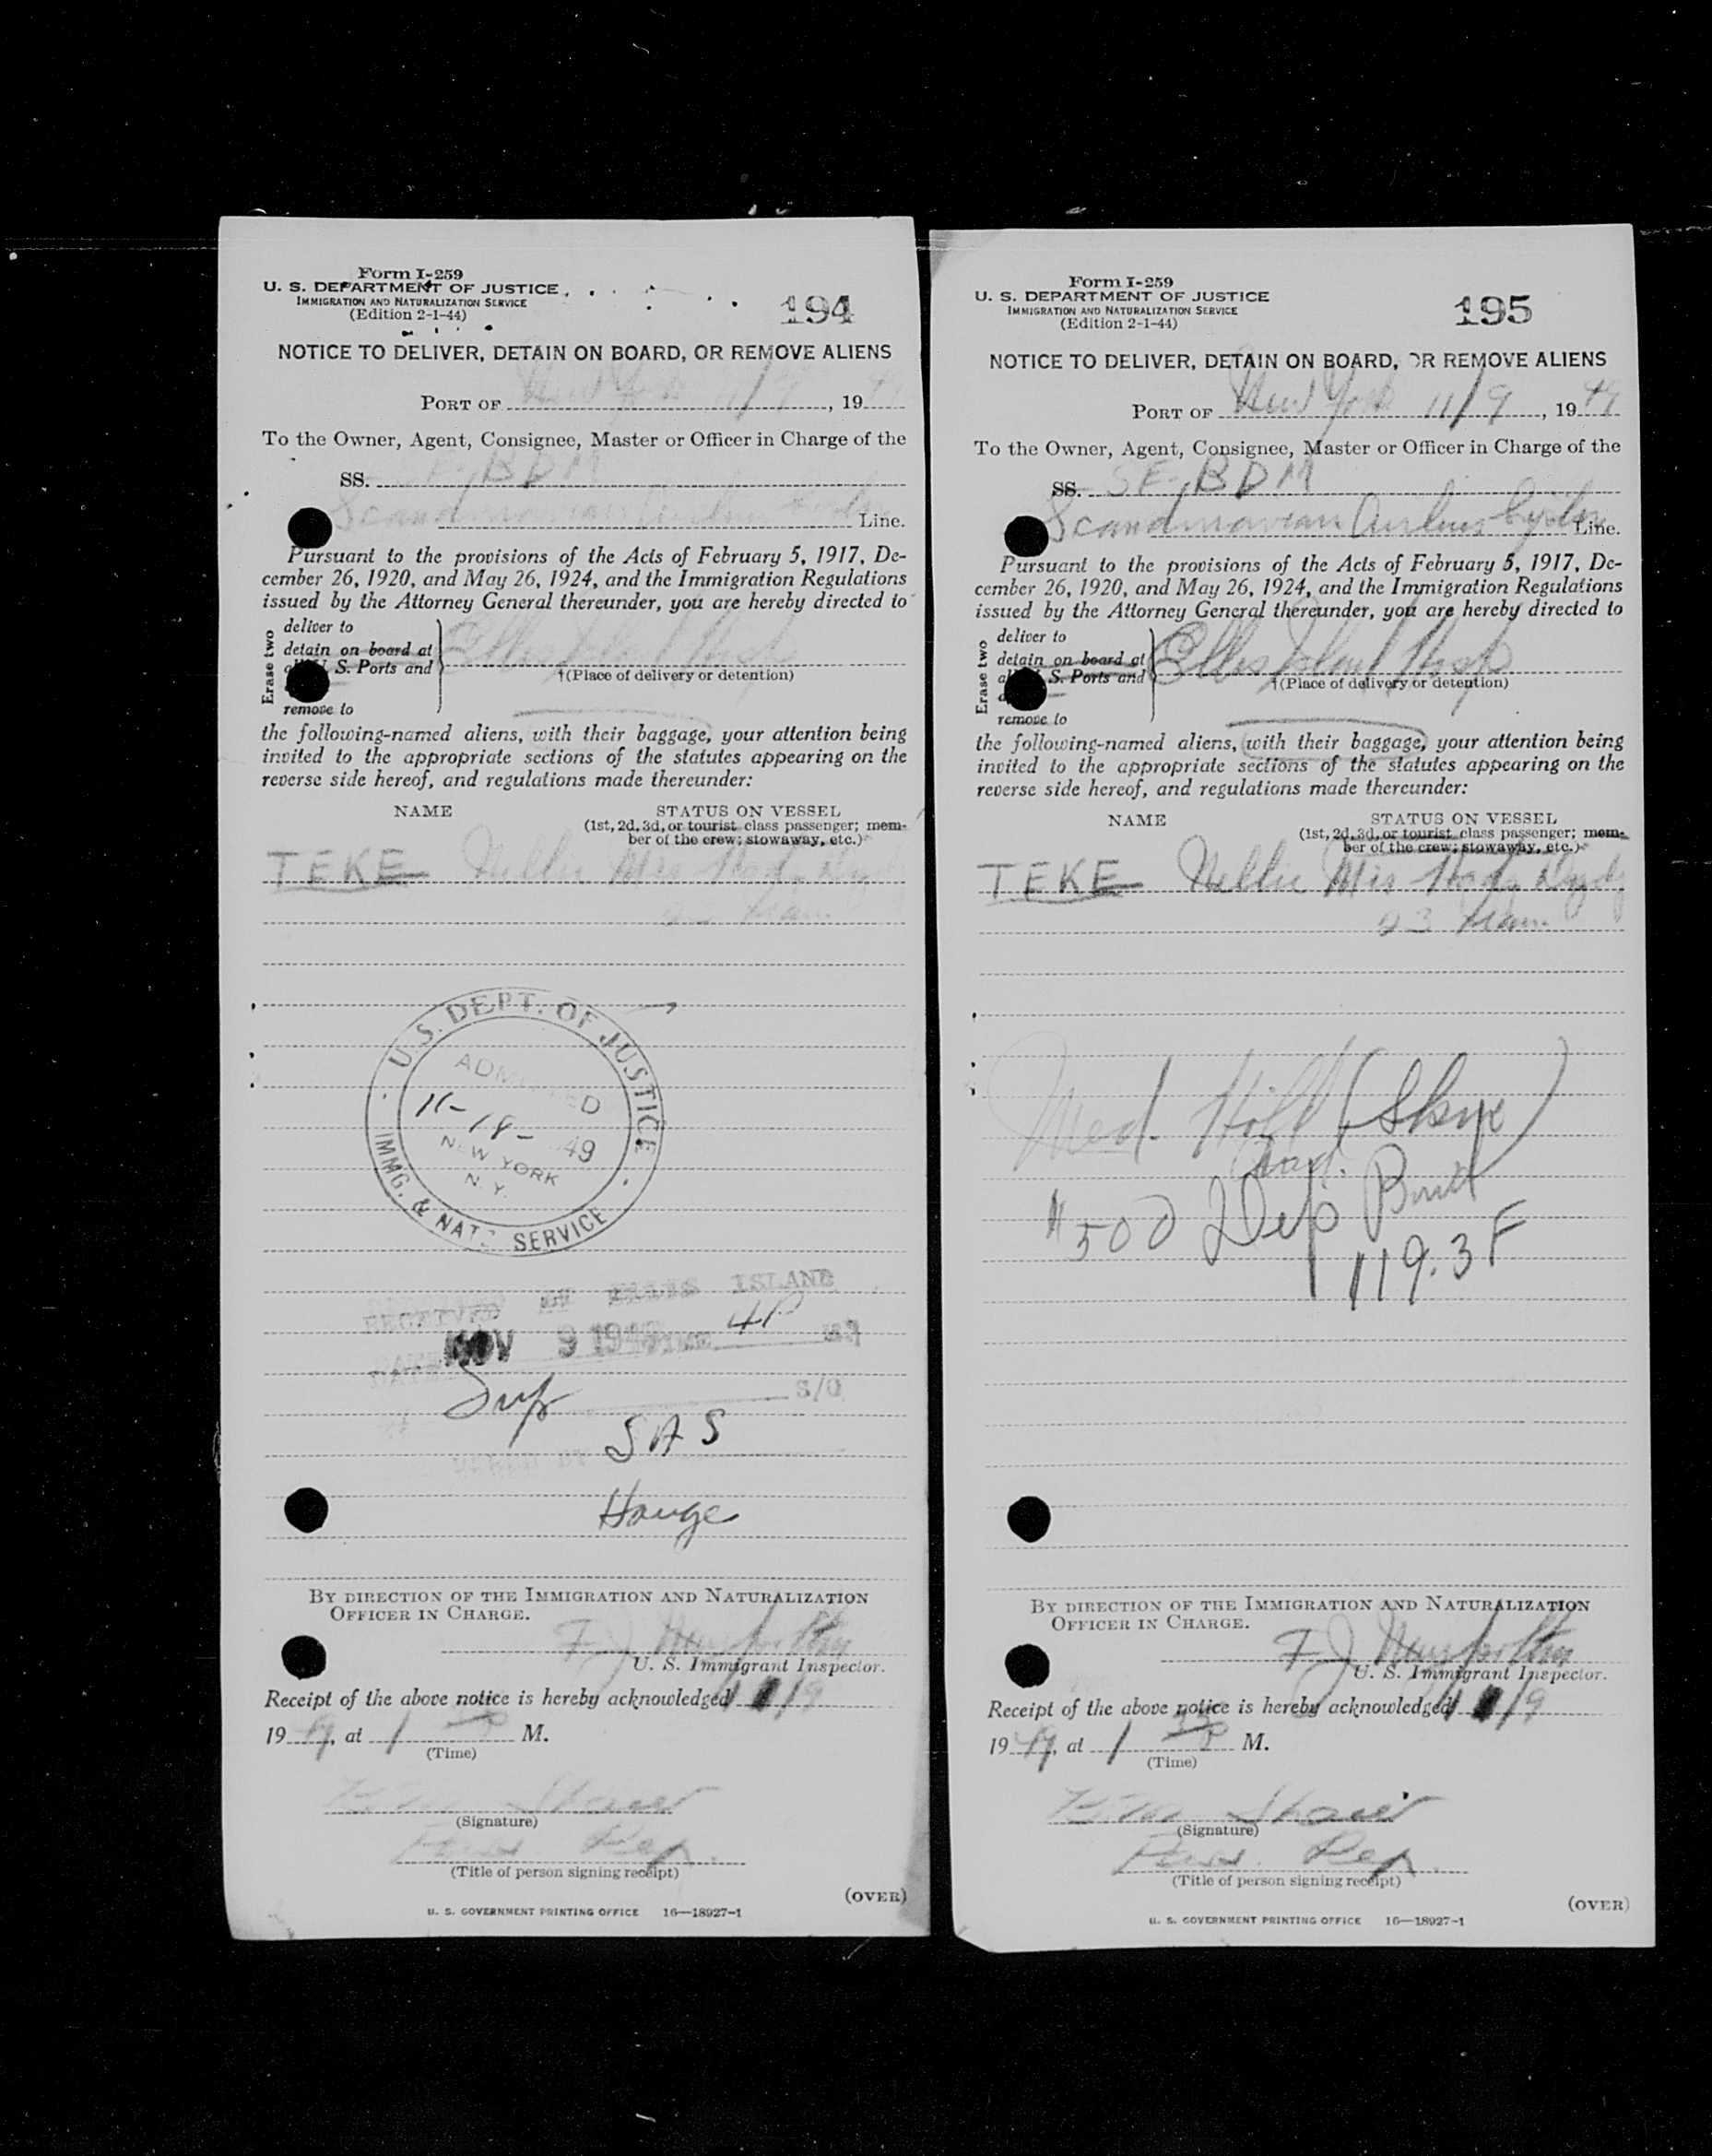 Form I-259
U. S. DEPARTMENT OF JUSTICE
IMMIGRATION AND NATURALIZATION SERVICE
(Edition 2-1-44)
194
NOTICE TO DELIVER, DETAIN ON BOARD, OR REMOVE ALIENS
PORT OF New York 11/9, 1949
To the Owner, Agent, Consignee, Master or Officer in Charge of the
SS. SE-BDM
Scandinavian Airlines Line.
Pursuant to the provisions of the Acts of February 5, 1917, De-
cember 26, 1920, and May 26, 1924, and the Immigration Regulations
issued by the Attorney General thereunder, you are hereby directed to
Erase two
deliver to
detain on board at
U. S. Ports and
remove to
Ellis Island Hosp
†(Place of delivery or detention)
the following-named aliens, with their baggage, your attention being
invited to the appropriate sections of the statutes appearing on the
reverse side hereof, and regulations made thereunder:
NAME STATUS ON VESSEL
(1st, 2d, 3d, or tourist class passenger; mem-
ber of the crew; stowaway, etc.)
TEKE Nellie Mrs
U.S. DEPT. OF JUSTICE
ADMITTED
11-18-49
NEW YORK
N.Y.
IMMG. & NATZ. SERVICE
RECEIVED AT ELLIS ISLAND
DATE NOV 9 1949 TIME 4P M
S/O
SAS
Hauge
BY DIRECTION OF THE IMMIGRATION AND NATURALIZATION
OFFICER IN CHARGE.
F J
U. S. Immigrant Inspector.
Receipt of the above notice is hereby acknowledged 11/9
1949, at 1 M.
(Time)
Shaw
(Signature)
Pass. Rep.
(Title of person signing receipt)
(OVER)
U. S. GOVERNMENT PRINTING OFFICE 16—18927-1
Form I-259
U. S. DEPARTMENT OF JUSTICE
IMMIGRATION AND NATURALIZATION SERVICE
(Edition 2-1-44)
195
NOTICE TO DELIVER, DETAIN ON BOARD, OR REMOVE ALIENS
PORT OF New York 11/9, 1949
To the Owner, Agent, Consignee, Master or Officer in Charge of the
SS. SE-BDM
Scandinavian Airlines System Line.
Pursuant to the provisions of the Acts of February 5, 1917, De-
cember 26, 1920, and May 26, 1924, and the Immigration Regulations
issued by the Attorney General thereunder, you are hereby directed to
Erase two
deliver to
detain on board at
all S. Ports and
remove to
Ellis Island Hosp
†(Place of delivery or detention)
the following-named aliens, with their baggage, your attention being
invited to the appropriate sections of the statutes appearing on the
reverse side hereof, and regulations made thereunder:
NAME STATUS ON VESSEL
(1st, 2d, 3d, or tourist class passenger; mem-
ber of the crew; stowaway, etc.)
TEKE Nellie Mrs
23
Med. Hold
$500 Dep Bond
119.3F
BY DIRECTION OF THE IMMIGRATION AND NATURALIZATION
OFFICER IN CHARGE.
F J
U. S. Immigrant Inspector.
Receipt of the above notice is hereby acknowledged 11/9
1949, at 1 M.
(Time)
Shaw
(Signature)
Pass. Rep.
(Title of person signing receipt)
(OVER)
U. S. GOVERNMENT PRINTING OFFICE 16—18927-1